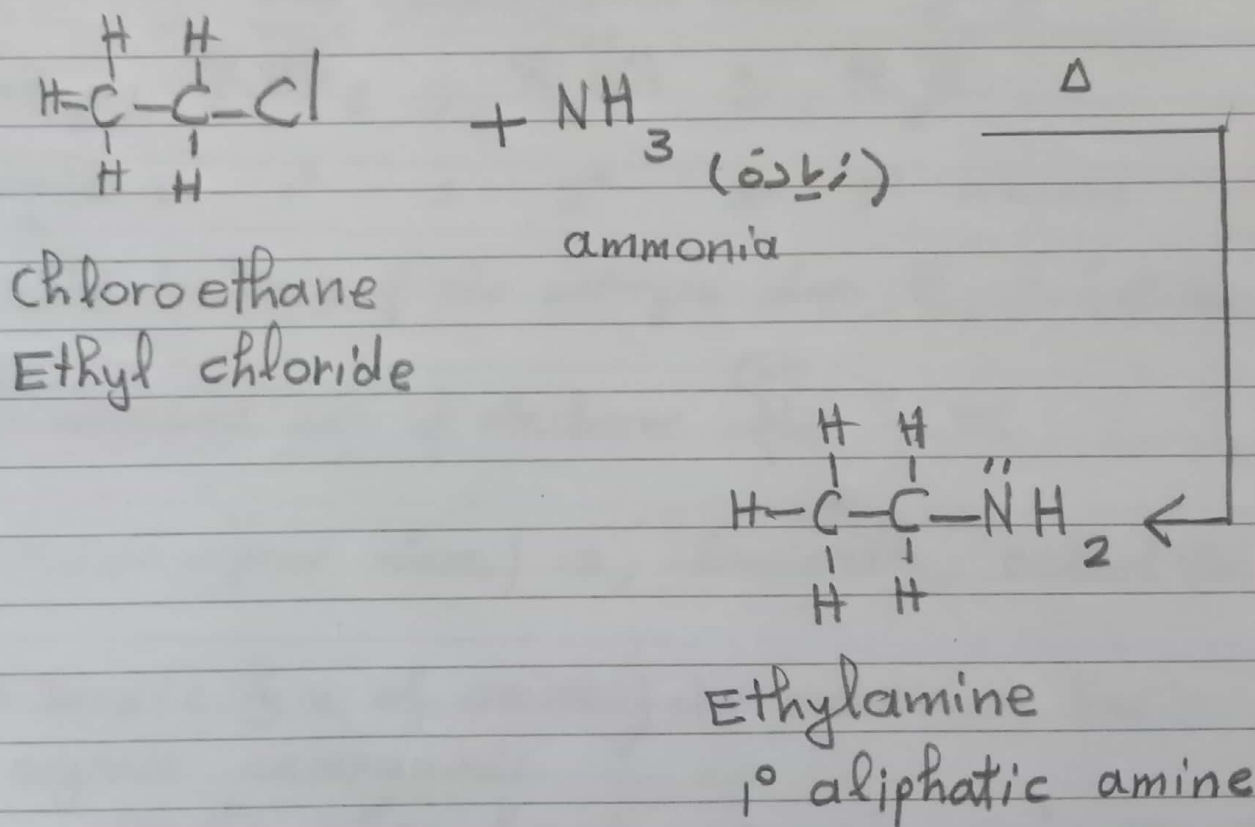 H H
H-C-C-Cl + NH3 Δ
H H
(زيادة)
ammonia
Chloroethane
Ethyl chloride
H H
H-C-C-N̈H2
H H
Ethylamine
1° aliphatic amine